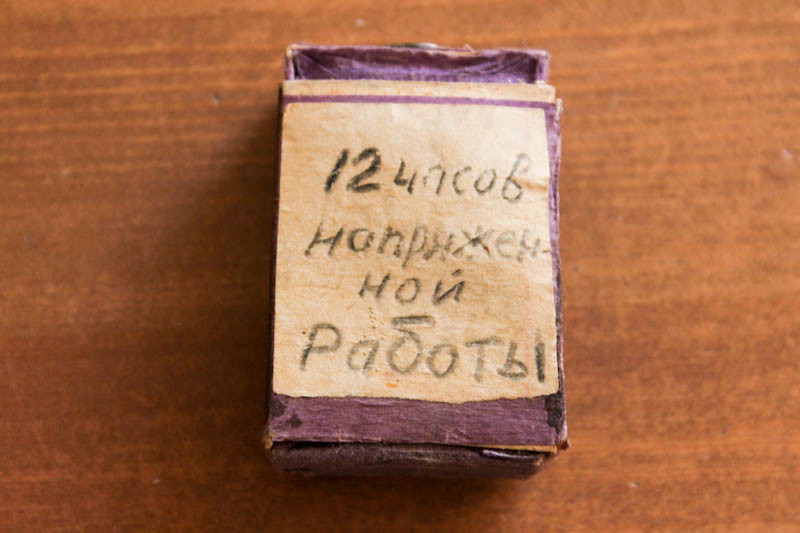 12 часов
напряжен-
ной
Работы